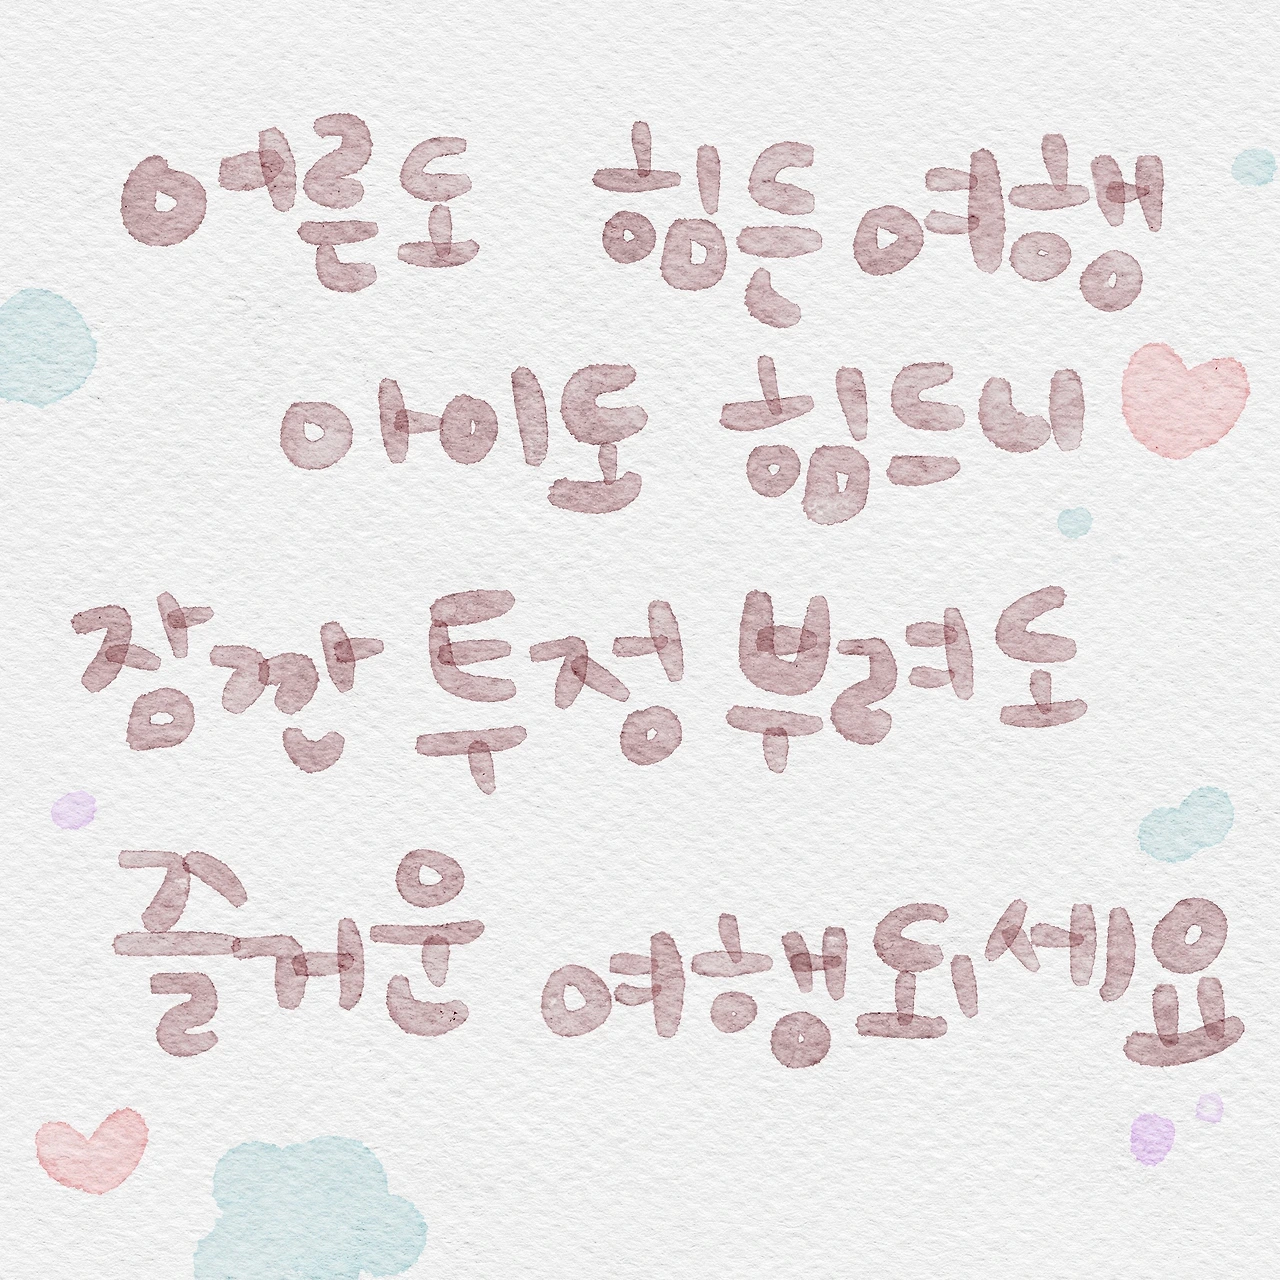 어른도 힘든 여행
아이도 힘드니
잠깐 투정 부려도
즐거운 여행되세요